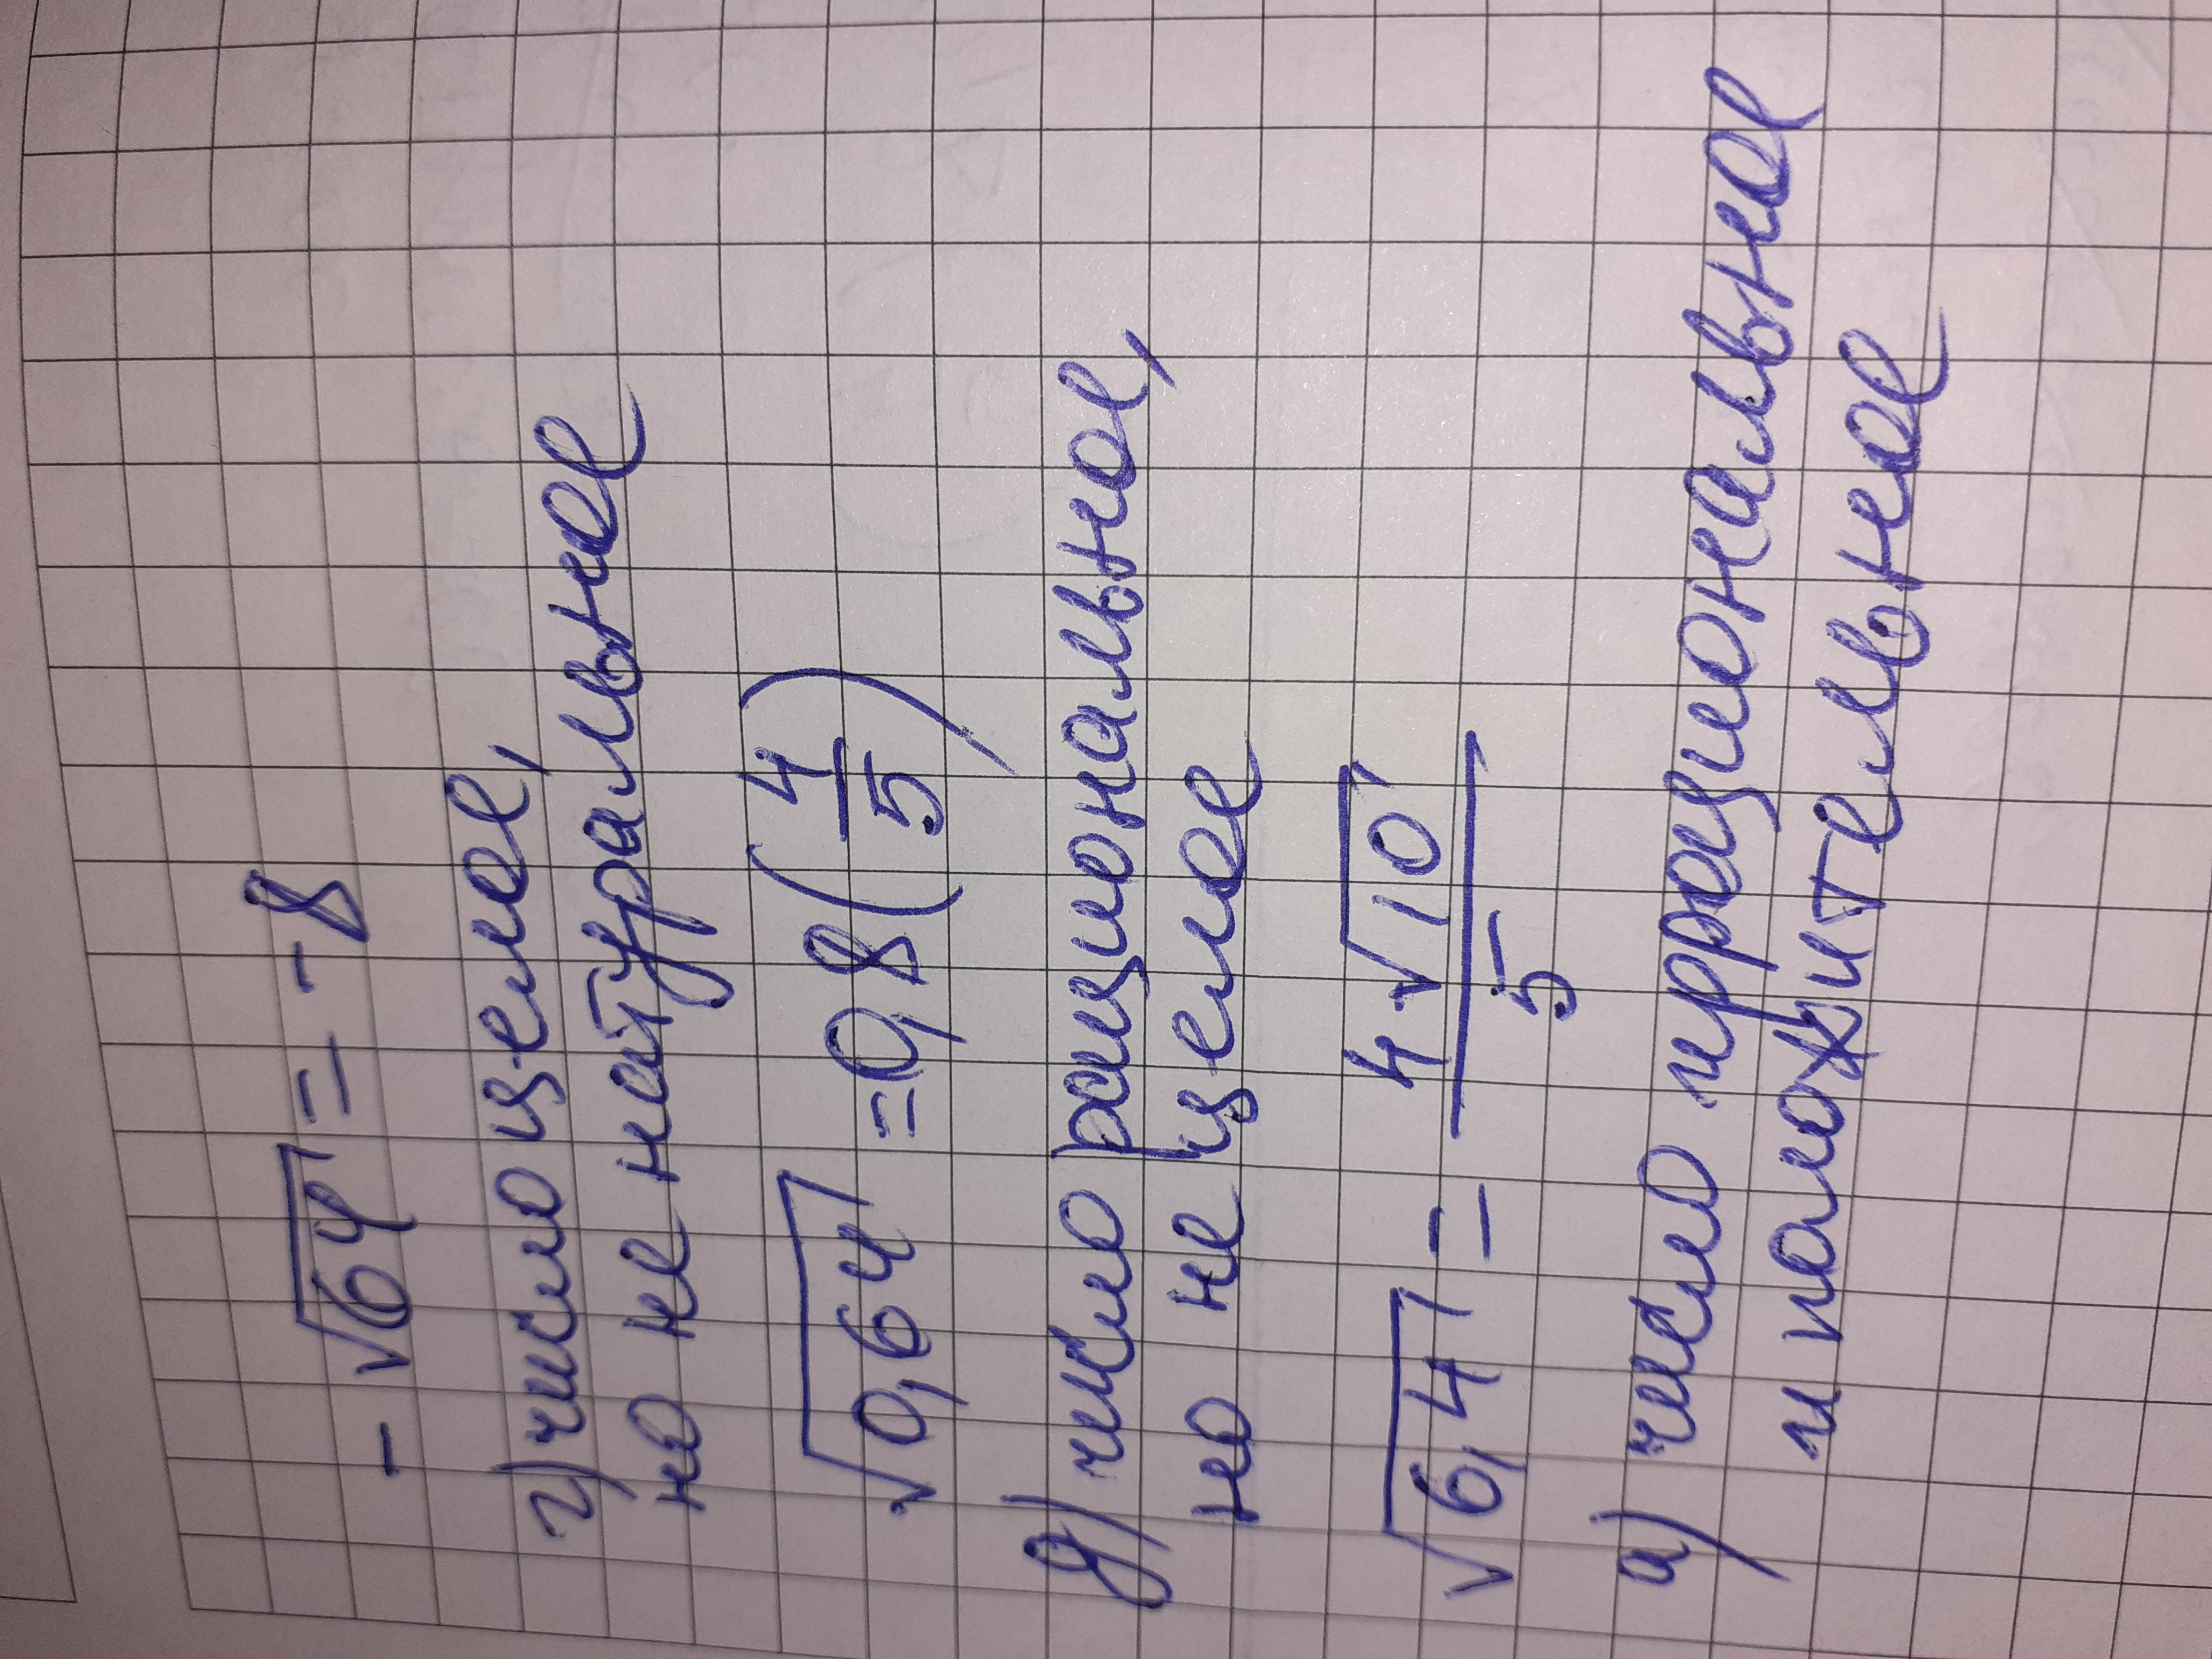 -√64 = -8
г) число целое,
но не натуральное
√0,64 = 0,8 (4/5)
д) число рациональное,
но не целое
√6,4 = 4√10/5
а) число иррациональное
и положительное